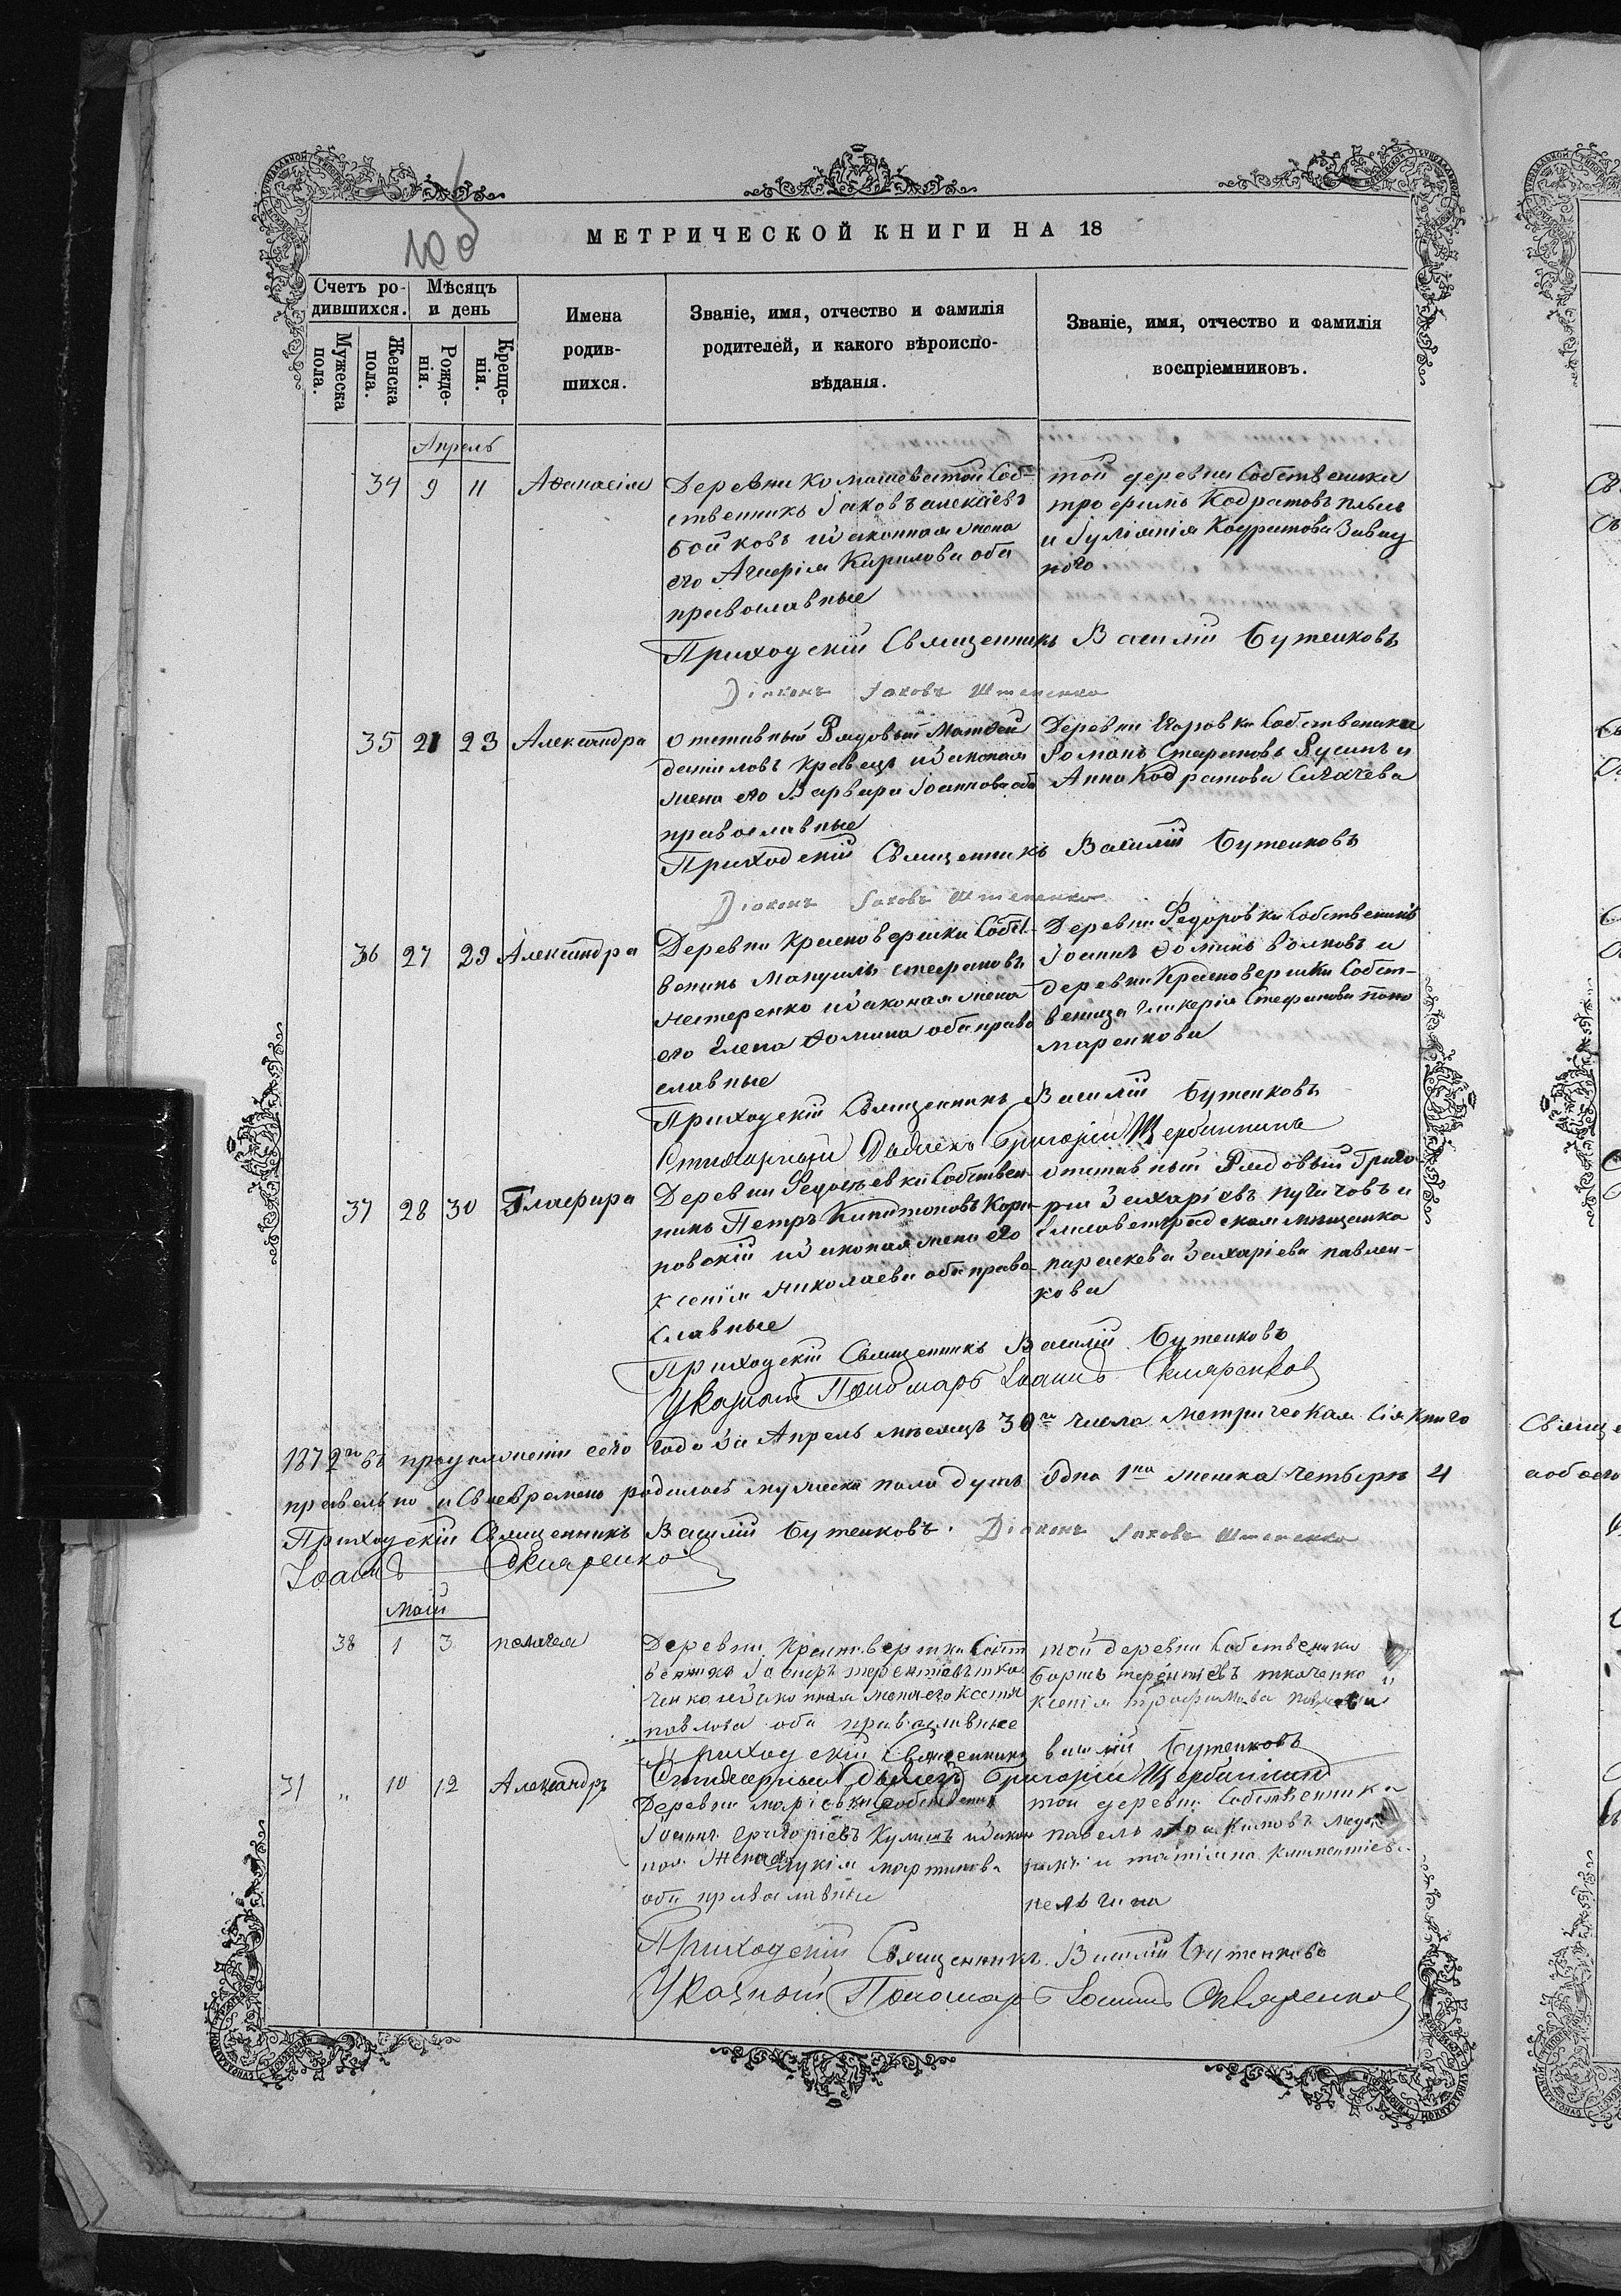 100
МЕТРИЧЕСКОЙ КНИГИ НА 18
Счетъ ро-
дившихся.
Мужеска пола.
Женска пола.
Мѣсяцъ
и день
Рожде-
нія.
Креще-
нія.
Имена
родив-
шихся.
Званіе, имя, отчество и фамилія
родителей, и какого вѣроиспо-
вѣданія.
Званіе, имя, отчество и фамилія
воспріемниковъ.
Апрель
34 9 11 Аѳанасія
Деревни Комишеватой Соб-
ственникъ Іаковъ алексіевъ
бойковъ изаконная жена
его Агнерія Кирилова оба
православные
той деревни Собственики
трофимъ Кодратовъ
и Іуліанія Кодратова
Приходскій Священникъ Василій Бутенковъ
Діаконъ Іаковъ Штепенко
35 21 23 Александра
отставный Рядовый Матвей
даниловъ кравецъ изаконая
жена его Варвара Іоаннова оба
православные
Деревни Егоровки Собственики
Романъ Стефановъ Русинъ и
Анна Кодратова
Приходскій Священникъ Василій Бутенковъ
Діаконъ Іаковъ Штепенко
36 27 29 Александра
Деревни Красновершки Собст-
веникъ Мануилъ стефановъ
нестеренко изаконая жена
его Елена Ѳомина оба право
славные
Деревни Федоровки Собственикъ
Іоаннъ Ѳоминъ волковъ и
деревни Красновершки Собст-
веница гликерія Стефанова поно
маренкова
Приходскій Священникъ Василій Бутенковъ
Стихарный Дьячекъ Григорій Щербининъ
37 28 30 Глафира
Деревни Собствен-
никъ Петръ Капитоновъ Кор-
новскій изаконая жена его
Ксенія николаева оба право-
славные
отставный Рядовый Григо-
рій Захаріевъ пугачовъ и
Елисаветградская мещанка
параскева Захаріева павлен-
кова
Приходскій Священникъ Василій Бутенковъ
Указной Пономарь Іоаннъ Скляренков
1872го въ продолженіи сего года за Апрель мѣсяцъ 30го числа метрическая сія Книго
правельно и Своевремено родилось мужеска пола душъ Одна 1на женска четыри 4
Приходскій Священникъ Василій Бутенковъ. Діаконъ Іаковъ Штепенко
Іоаннъ Скляренков
Май
38 1 3 пелагея
Деревни Красновершки Собст
веникъ терентіевъ тка
ченко изаконная жена его Ксенія
павлова оба православные
той деревни Собственики
Борисъ терентіевъ ткаченко и
Ксенія трофимова
Приходскій Священникъ василій Бутенковъ
Стихарный Дьячекъ Григорій Щербининъ
31 „ 10 12 Александръ
Деревни маріевки Собственикъ
Іоаннъ григоріевъ Кулишъ изакон
ная жена его лукія мартинова
оба православные
той деревни Собственники
павелъ
и татіана климентіева
пельгина
Приходскій Священникъ Василій Бутенковъ
Указной Пономарь Іоаннъ Скляренков